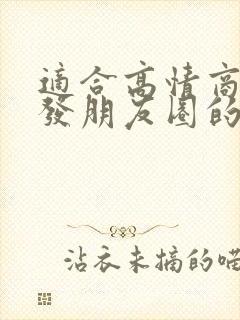 適合高情商
發朋友圈的
沾衣未摘的喵